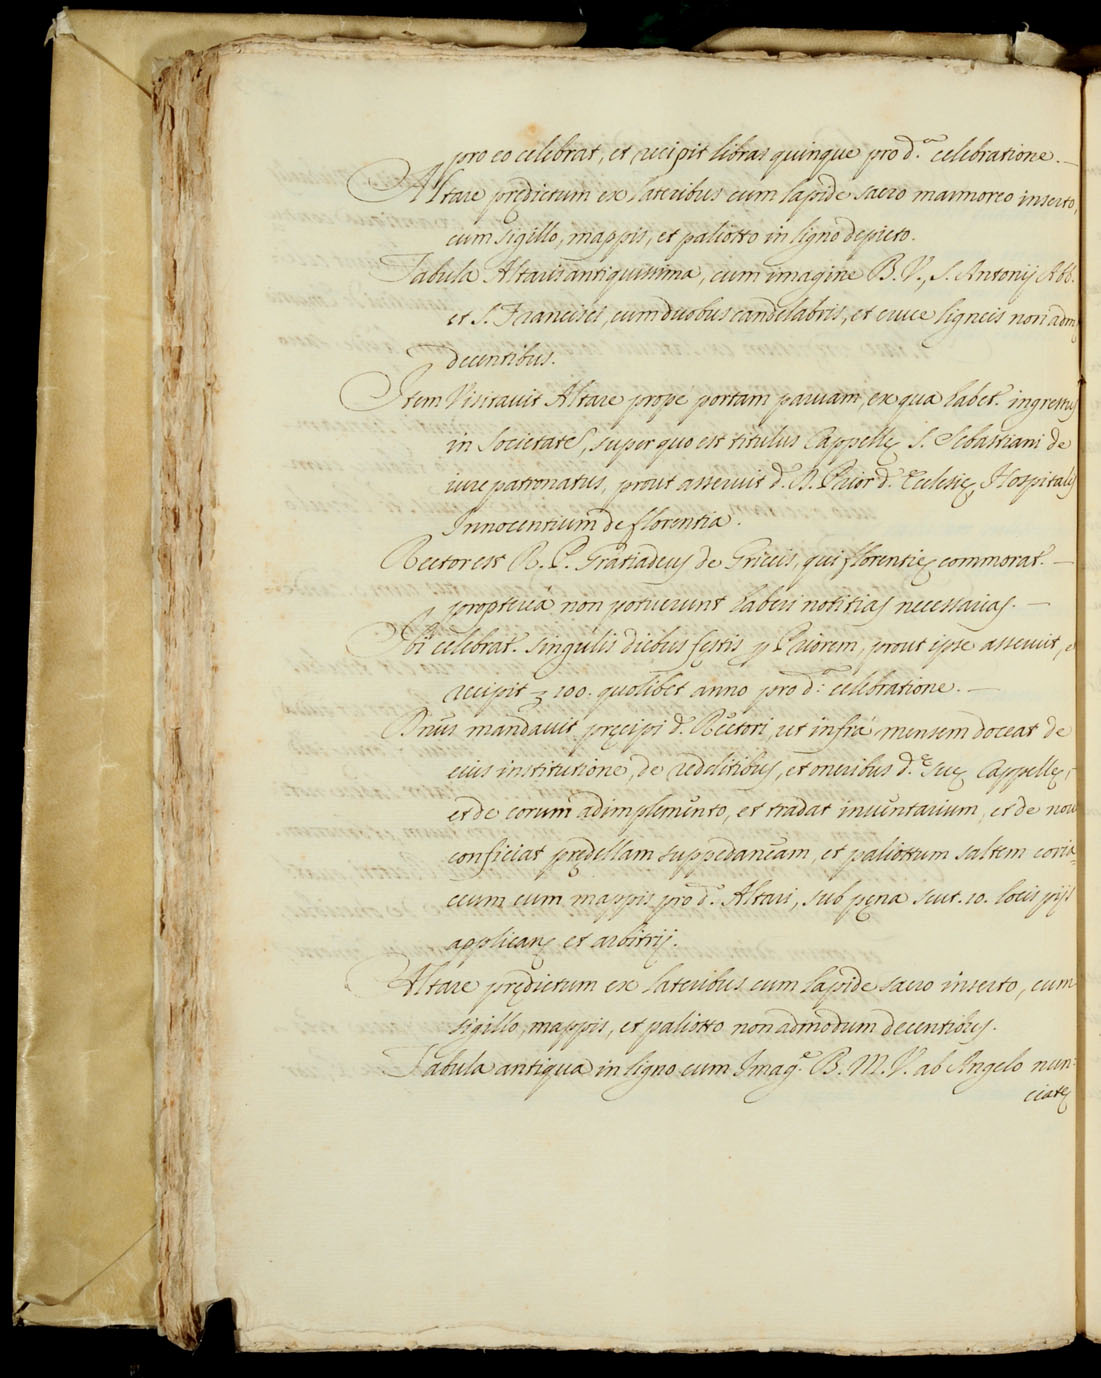 pro eo celebrat, et recipit libras quinque pro d.ᵃ celebratione. —
Altare prędictum ex lateribus cum lapide sacro marmoreo inserto,
cum sigillo, mappis, et paliotto in ligno depicto.
Tabula Altaris antiquissima, cum imagine B. V., S. Antonij Abb.
et S. Francisci, cum duobus candelabris, et cruce ligneis non adm:
decentibus.
Item Visitavit Altare prope portam parvam, ex qua habet.ʳ ingressus
in Societatē, super quo est titulus Cappellę S. Sebastiani de
iure patronatus, prout asseruit d. R. Prior d.ᵉ Ecclesię, Hospitalis
Innocentium de florentia.
Rector est R. P. Gratiadeus de Griccis, qui florentię commorat.ʳ —
propterea non potuerunt haberi notitias necessarias. —
Ibi celebrat.ʳ singulis diebus festis p Priorem, prout ipse asseruit, et
recipit ʒ 100. quolibet anno pro d.ᵃ celebratione. —
Dnus mandavit pręcipi d. Rectori, ut infra mensem doceat de
eius institutione, de redditibus, et oneribus d.ᵉ suę Cappellę,
et de eorum adimplemento, et tradat inventarium, et de novo
conficiat predellam suppedaneam, et paliottum saltem coria=
ceum cum mappis pro d.ᵒ Altari, sub pęna scut. 10. locis pijs
applicanę et arbitrij.
Altare prędictum ex lateribus cum lapide sacro inserto, cum
sigillo, mappis, et paliotto non admodum decentibus.
Tabula antiqua in ligno cum Imag.ᵉ B. M. V. ab Angelo nun:
ciatę